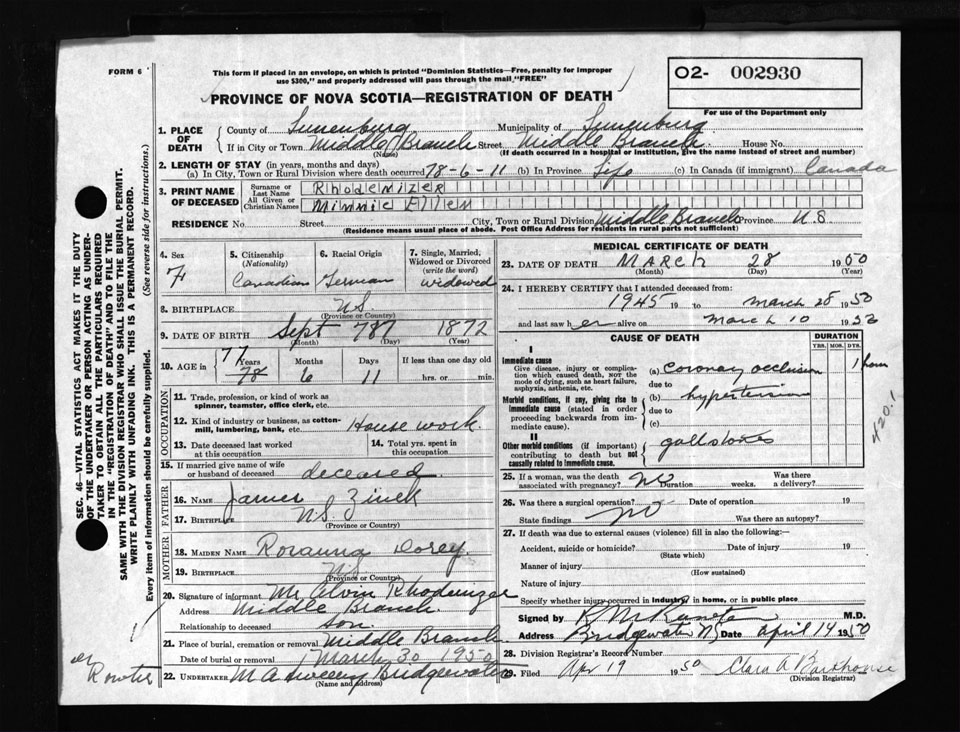 FORM 6
This form if placed in an envelope, on which is printed "Dominion Statistics—Free, penalty for improper
use $300," and properly addressed will pass through the mail, "FREE"
O2- 002930
For use of the Department only
PROVINCE OF NOVA SCOTIA—REGISTRATION OF DEATH
SEC. 46—VITAL STATISTICS ACT MAKES IT THE DUTY
OF THE UNDERTAKER OR PERSON ACTING AS UNDER-
TAKER TO OBTAIN ALL THE PARTICULARS REQUIRED
IN THE "REGISTRATION OF DEATH" AND TO FILE THE
SAME WITH THE DIVISION REGISTRAR WHO SHALL ISSUE THE BURIAL PERMIT.
WRITE PLAINLY WITH UNFADING INK. THIS IS A PERMANENT RECORD.
Every item of information should be carefully supplied. (See reverse side for instructions.)
1. PLACE OF DEATH County of Lunenburg Municipality of Lunenburg
If in City or Town Middle Branch Street Middle Branch House No.
(Name) (If death occurred in a hospital or institution, give the name instead of street and number)
2. LENGTH OF STAY (in years, months and days)
(a) In City, Town or Rural Division where death occurred 78-6-11 (b) In Province Life (c) In Canada (if immigrant) Canada
3. PRINT NAME OF DECEASED Surname or Last Name Rhodenizer
All Given or Christian Names Minnie Ellen
RESIDENCE No. Street City, Town or Rural Division Middle Branch Province N.S
(Residence means usual place of abode. Post Office Address for residents in rural parts not sufficient)
4. Sex F
5. Citizenship (Nationality) Canadian
6. Racial Origin German
7. Single, Married, Widowed or Divorced (write the word) widowed
8. BIRTHPLACE NS
(Province or Country)
9. DATE OF BIRTH Sept 1872
(Month) (Day) (Year)
10. AGE in 77 78 Years 6 Months 11 Days If less than one day old
hrs. or min.
OCCUPATION
11. Trade, profession, or kind of work as
spinner, teamster, office clerk, etc.
12. Kind of industry or business, as cotton-
mill, lumbering, bank, etc. House work.
13. Date deceased last worked at this occupation
14. Total yrs. spent in this occupation
15. If married give name of wife
or husband of deceased deceased
FATHER
16. NAME James Zinck
17. BIRTHPLACE N.S.
(Province or Country)
MOTHER
18. MAIDEN NAME Rosanna Dorey
19. BIRTHPLACE N.S
(Province or Country)
20. Signature of informant Mr Alvin Rhodenizer
Address Middle Branch.
Relationship to deceased son.
21. Place of burial, cremation or removal Middle Branch
Date of burial or removal March 30 1950
22. UNDERTAKER M A Sweeny Bridgewater
(Name and address)
MEDICAL CERTIFICATE OF DEATH
23. DATE OF DEATH MARCH 28 1950
(Month) (Day) (Year)
24. I HEREBY CERTIFY that I attended deceased from:
1945 19 to March 28 1950
and last saw her alive on March 10 1950
CAUSE OF DEATH DURATION
YRS. MOS. DYS.
I
Immediate cause
Give disease, injury or complica-
tion which caused death, NOT the
mode of dying, such as heart failure,
asphyxia, asthenia, etc.
(a) coronary occlusion 1 hour
due to
Morbid conditions, if any, giving rise to
immediate cause (stated in order
proceeding backwards from
immediate cause)
(b) hypertension
due to
(c)
II
Other morbid conditions (if important)
contributing to death but not
causally related to immediate cause.
gallstones
420.1
25. If a woman, was the death
associated with pregnancy? no Duration weeks. Was there
a delivery?
26. Was there a surgical operation? no Date of operation 19
State findings Was there an autopsy?
27. If death was due to external causes (violence) fill in also the following:—
Accident, suicide or homicide? Date of injury 19
(State which)
Manner of injury
(How sustained)
Nature of injury
Specify whether injury occurred in industry, in home, or in public place
Signed by M.D.
Address Bridgewater NS Date April 14 1950
28. Division Registrar's Record Number
29. Filed Apr 19 1950 Clara A
(Division Registrar)